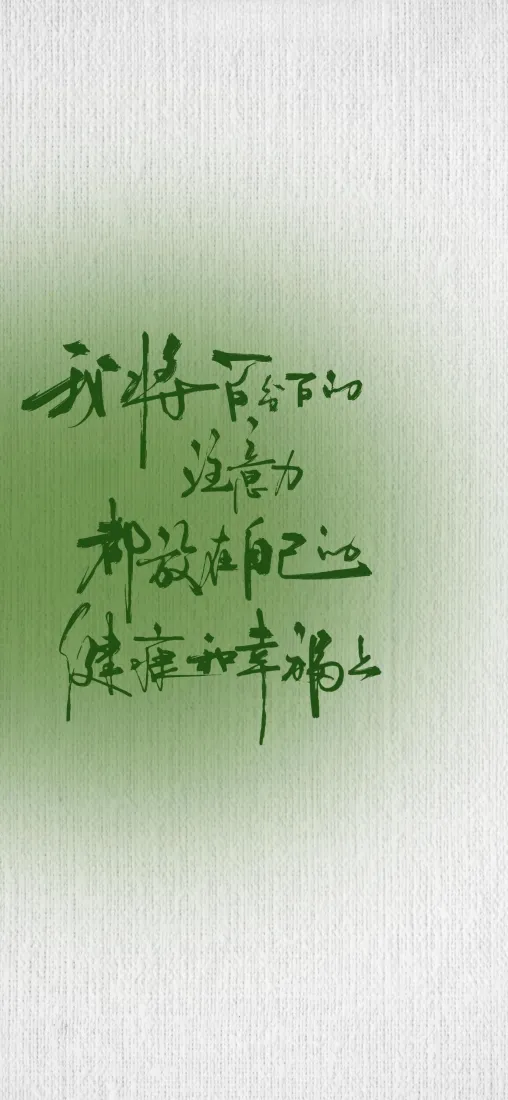 我将百分百的
注意力
都放在自己的
健康和幸福上